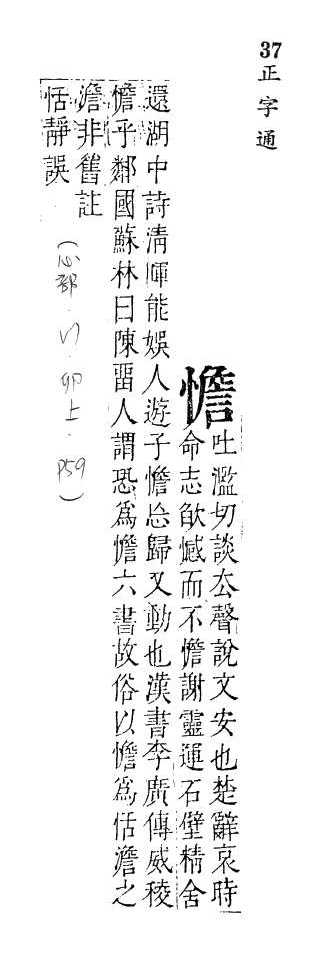 37正字通
憺
吐濫切談去聲說文安也楚辭哀時
命志欿憾而不憺謝靈運石壁精舍
還湖中詩清暉能娛人遊子憺忘歸又動也漢書李廣傳威稜
憺乎鄰國蘇林曰陳畱人謂恐爲憺六書故俗以憺爲恬澹之
澹非舊註
恬靜誤
(心部.
卯上.
P59)